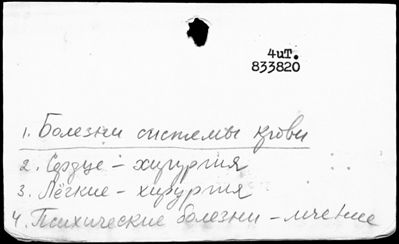 4иТ.
833820
1. Болезни системы крови
2. Сердце - хирургия
3. Лёгкие - хирургия
4. Психические болезни - лечение